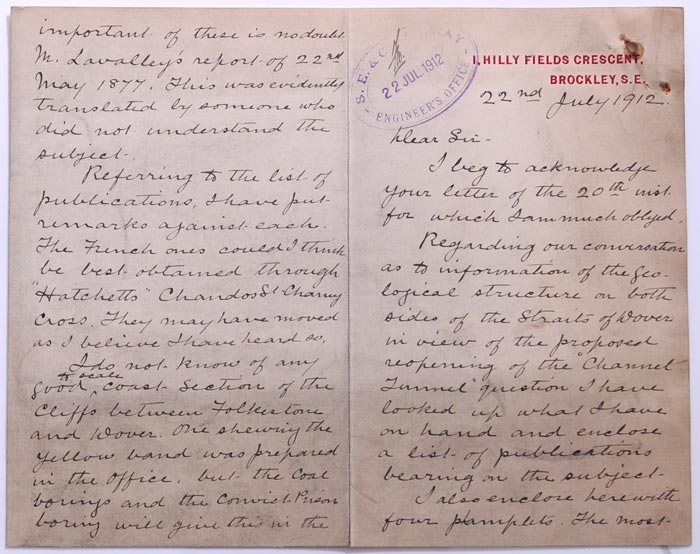 HILLY FIELDS CRESCENT,
BROCKLEY, S.E.
S. E. & C. RAILWAY
22 JUL 1912
ENGINEER'S OFFICE
22nd July 1912.
Dear Sir -
I beg to acknowledge
your letter of the 20th inst.
for which I am much obliged.
Regarding our conversation
as to information of the Geo-
logical structure on both
sides of the Straits of Dover
in view of the proposed
reopening of the "Channel
Tunnel" question I have
looked up what I have
on hand and enclose
a list of publications
bearing on the subject.
I also enclose herewith
four pamplets. The most
important of these is no doubt
M. Lavalley's report of 22nd
May 1877. This was evidently
translated by someone who
did not understand the
subject.
Referring to the list of
publications, I have put
remarks against each.
The French ones could I think
be best obtained through
"Hatchetts" Chandos St Charing
Cross. They may have moved
as I believe I have heard so.
I do not know of any
good to scale coast Section of the
Cliffs between Folkestone
and Dover. One shewing the
yellow band was prepared
in the Office. but the Coal
borings and the Convict Prison
boring will give this in the